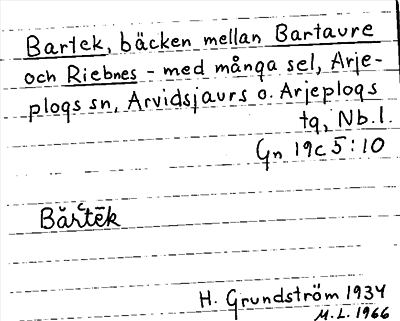 Bartek, bäcken mellan Bartaure
och Riebnes - med många sel, Arje-
plogs sn, Arvidsjaurs o. Arjeplogs
tg, Nb.l.
Gn 19c 5:10
H. Grundström 1934
M.L. 1966